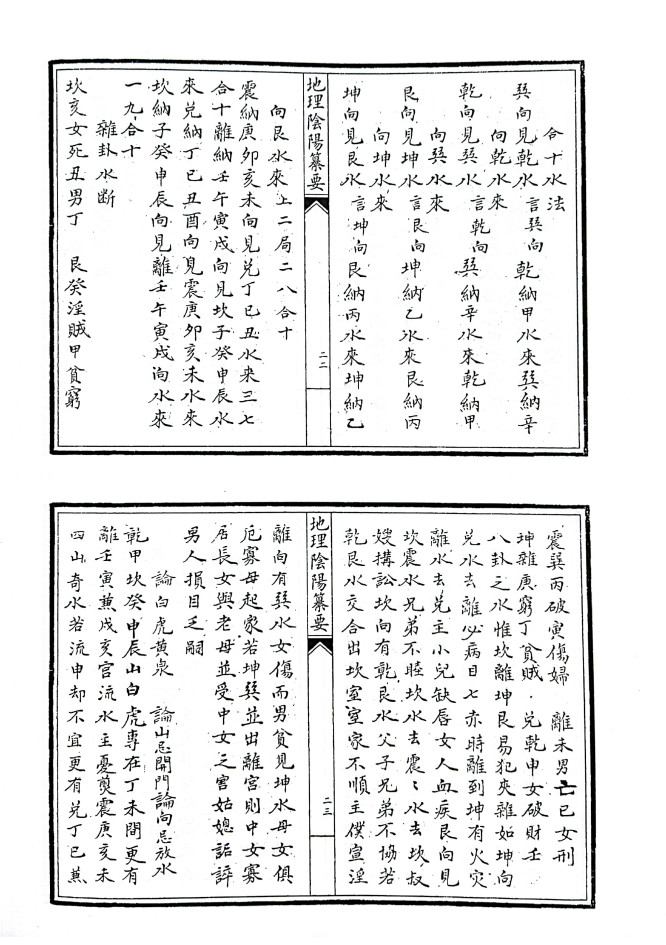 合十水法
巽向見乾水言巽向乾納甲水來巽納辛
向乾水來
乾向見巽水言乾向巽納辛水來乾納甲
向巽水來
艮向見坤水言艮向坤納乙水來艮納丙
向坤水來
坤向見艮水言坤向艮納丙水來坤納乙
地理陰陽纂要
二二
向艮水來上二局二八合十
震納庚卯亥未向見兌丁巳丑水來三七
合十離納壬午寅戌向見坎子癸申辰水
來兌納丁巳丑酉向見震庚卯亥未水來
坎納子癸申辰向見離壬午寅戌向水來
一九合十
雜卦水断
坎亥女死丑男丁 艮癸淫賊甲貧窮
震巽丙破寅傷婦 離未男亡巳女刑
坤雜庚窮丁貧賊 兌乾申女破財壬
八卦之水惟坎離坤艮易犯夾雜如坤向
兌水去離必病目七赤時離到坤有火灾
離水去兌主小兒缺唇女人血疾艮向見
坎震水兄弟不睦坎水去震震水去坎叔
嫂搆訟坎向有乾艮水父子兄弟不協若
乾艮水交合出坎室室家不順主僕宣淫
地理陰陽纂要
二三
離向有巽水女傷而男貧見坤水母女俱
厄寡母起家若坤巽並出離宮則中女寡
居長女與老母並受中女之害姑媳詬誶
男人損目乏嗣
論白虎黄泉 論山忌開門論向忌放水
乾甲坎癸申辰山白虎專在丁未間更有
離壬寅蒹戌亥宮流水主憂煎震庚亥未
四山奇水若流申却不宜更有兌丁巳蒹